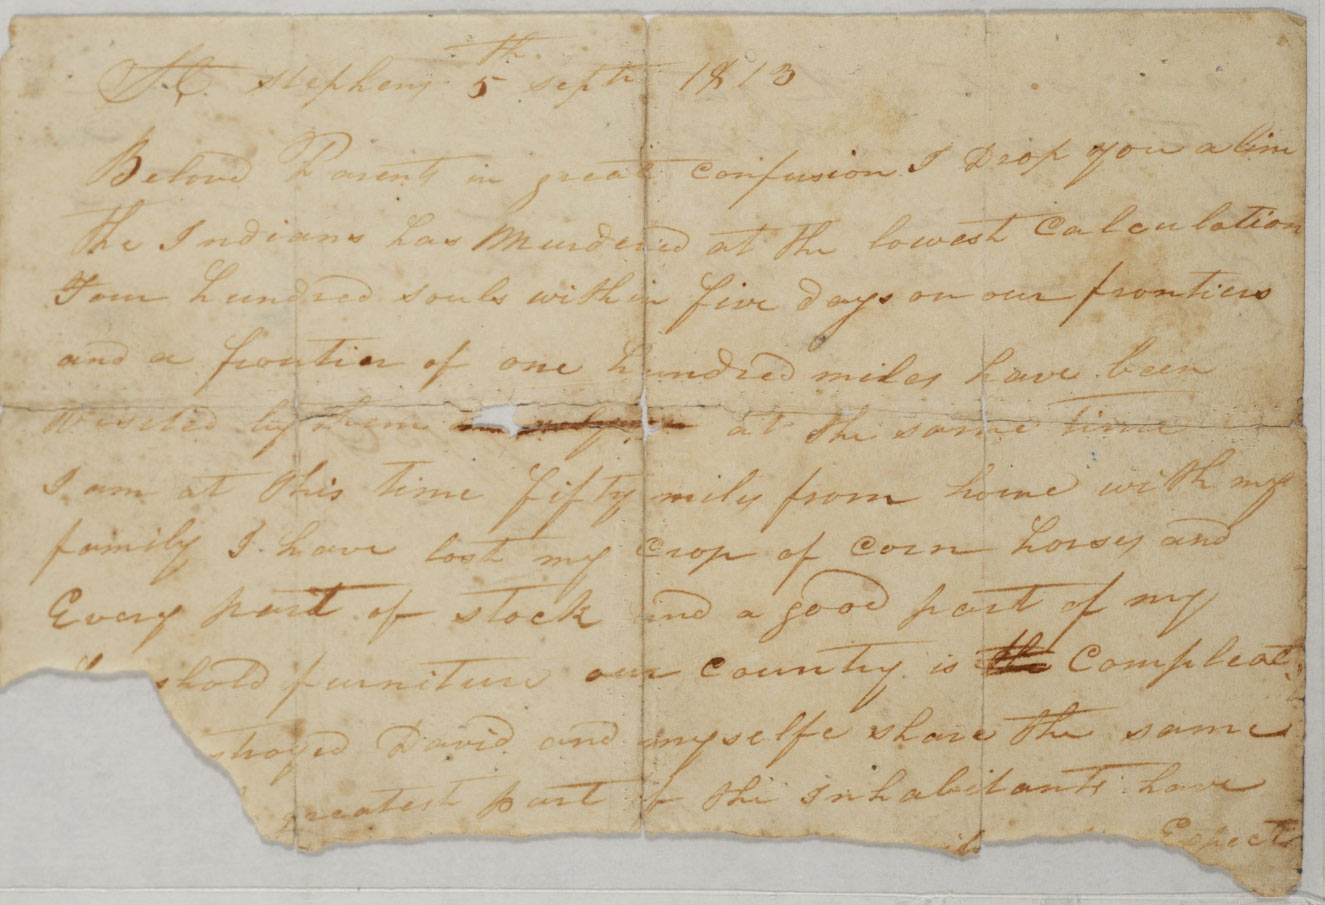 St Stephens 5th Septr 1813
Beloved Parents in great confusion I Drop you a line
the Indians has Murdered at the lowest Calculation
Four hundred souls within five days on our frontiers
and a frontier of one hundred miles have been
visited by them at the same time
I am at this time fifty miles from home with my
family I have lost my crop of corn horses and
Every part of stock and a good part of my
shold furniture our Country is Compleat
stroyed David and myselfe share the same
greatest part of the inhabitants have
Expect